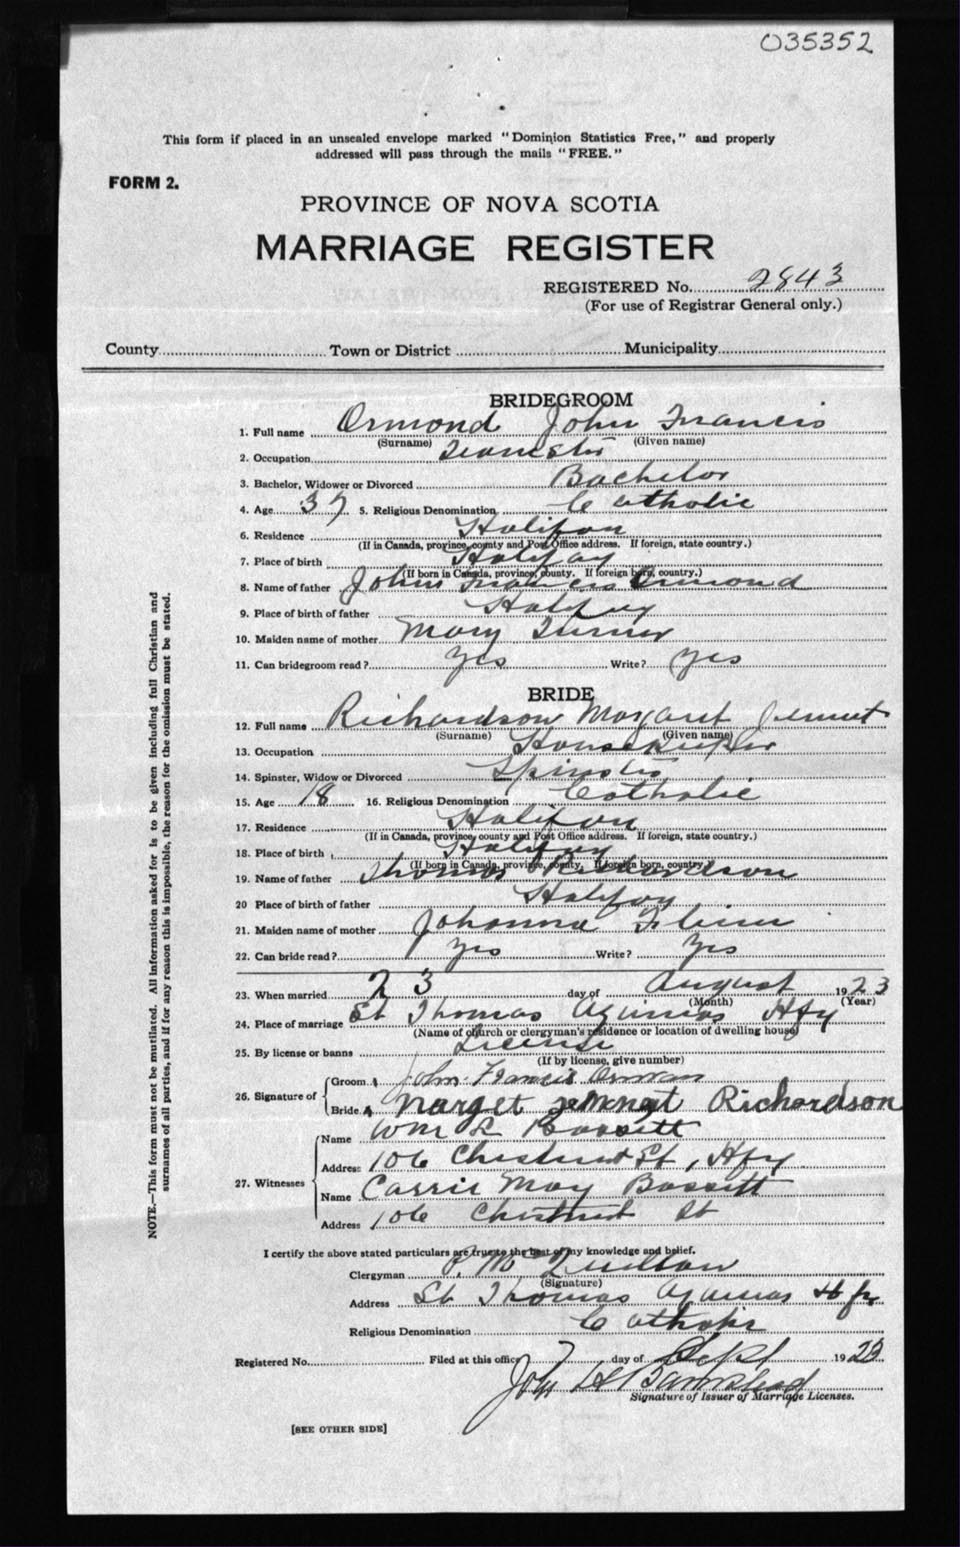 035352
This form if placed in an unsealed envelope marked "Dominion Statistics Free," and properly
addressed will pass through the mails "FREE."
FORM 2.
PROVINCE OF NOVA SCOTIA
MARRIAGE REGISTER
REGISTERED No. 2843
(For use of Registrar General only.)
County Town or District Municipality
BRIDEGROOM
1. Full name Ormond John Francis
(Surname) (Given name)
2. Occupation Teamster
3. Bachelor, Widower or Divorced Bachelor
4. Age 37 5. Religious Denomination Catholic
6. Residence Halifax
(If in Canada, province, county and Post Office address. If foreign, state country.)
7. Place of birth Halifax
(If born in Canada, province, county. If foreign born, country.)
8. Name of father John Francis Ormond
9. Place of birth of father Halifax
10. Maiden name of mother Mary Turner
11. Can bridegroom read? Yes Write? Yes
BRIDE
12. Full name Richardson Margaret
(Surname) (Given name)
13. Occupation Housekeeper
14. Spinster, Widow or Divorced Spinster
15. Age 18 16. Religious Denomination Catholic
17. Residence Halifax
(If in Canada, province, county and Post Office address. If foreign, state country.)
18. Place of birth Halifax
(If born in Canada, province, county. If foreign born, country.)
19. Name of father Thomas Richardson
20 Place of birth of father Halifax
21. Maiden name of mother Johanna
22. Can bride read? Yes Write? Yes
23. When married 23 day of August 1923
(Month) (Year)
24. Place of marriage St Thomas Aquinas Hfx
(Name of church or clergyman's residence or location of dwelling house)
25. By license or banns License
(If by license, give number)
26. Signature of Groom John Francis
Bride Richardson
27. Witnesses Name Wm R Bassett
Address 106 Chestnut St, Hfx
Name Carrie May Bassett
Address 106 Chestnut St
I certify the above stated particulars are true to the best of my knowledge and belief.
Clergyman
(Signature)
Address St Thomas Aquinas Hfx
Religious Denomination Catholic
Registered No. Filed at this office 7 day of Sept 1923
John H Barnstead
Signature of Issuer of Marriage Licenses.
[SEE OTHER SIDE]
NOTE.—This form must not be mutilated. All information asked for is to be given including full Christian and
surnames of all parties, and if for any reason this is impossible, the reason for the omission must be stated.